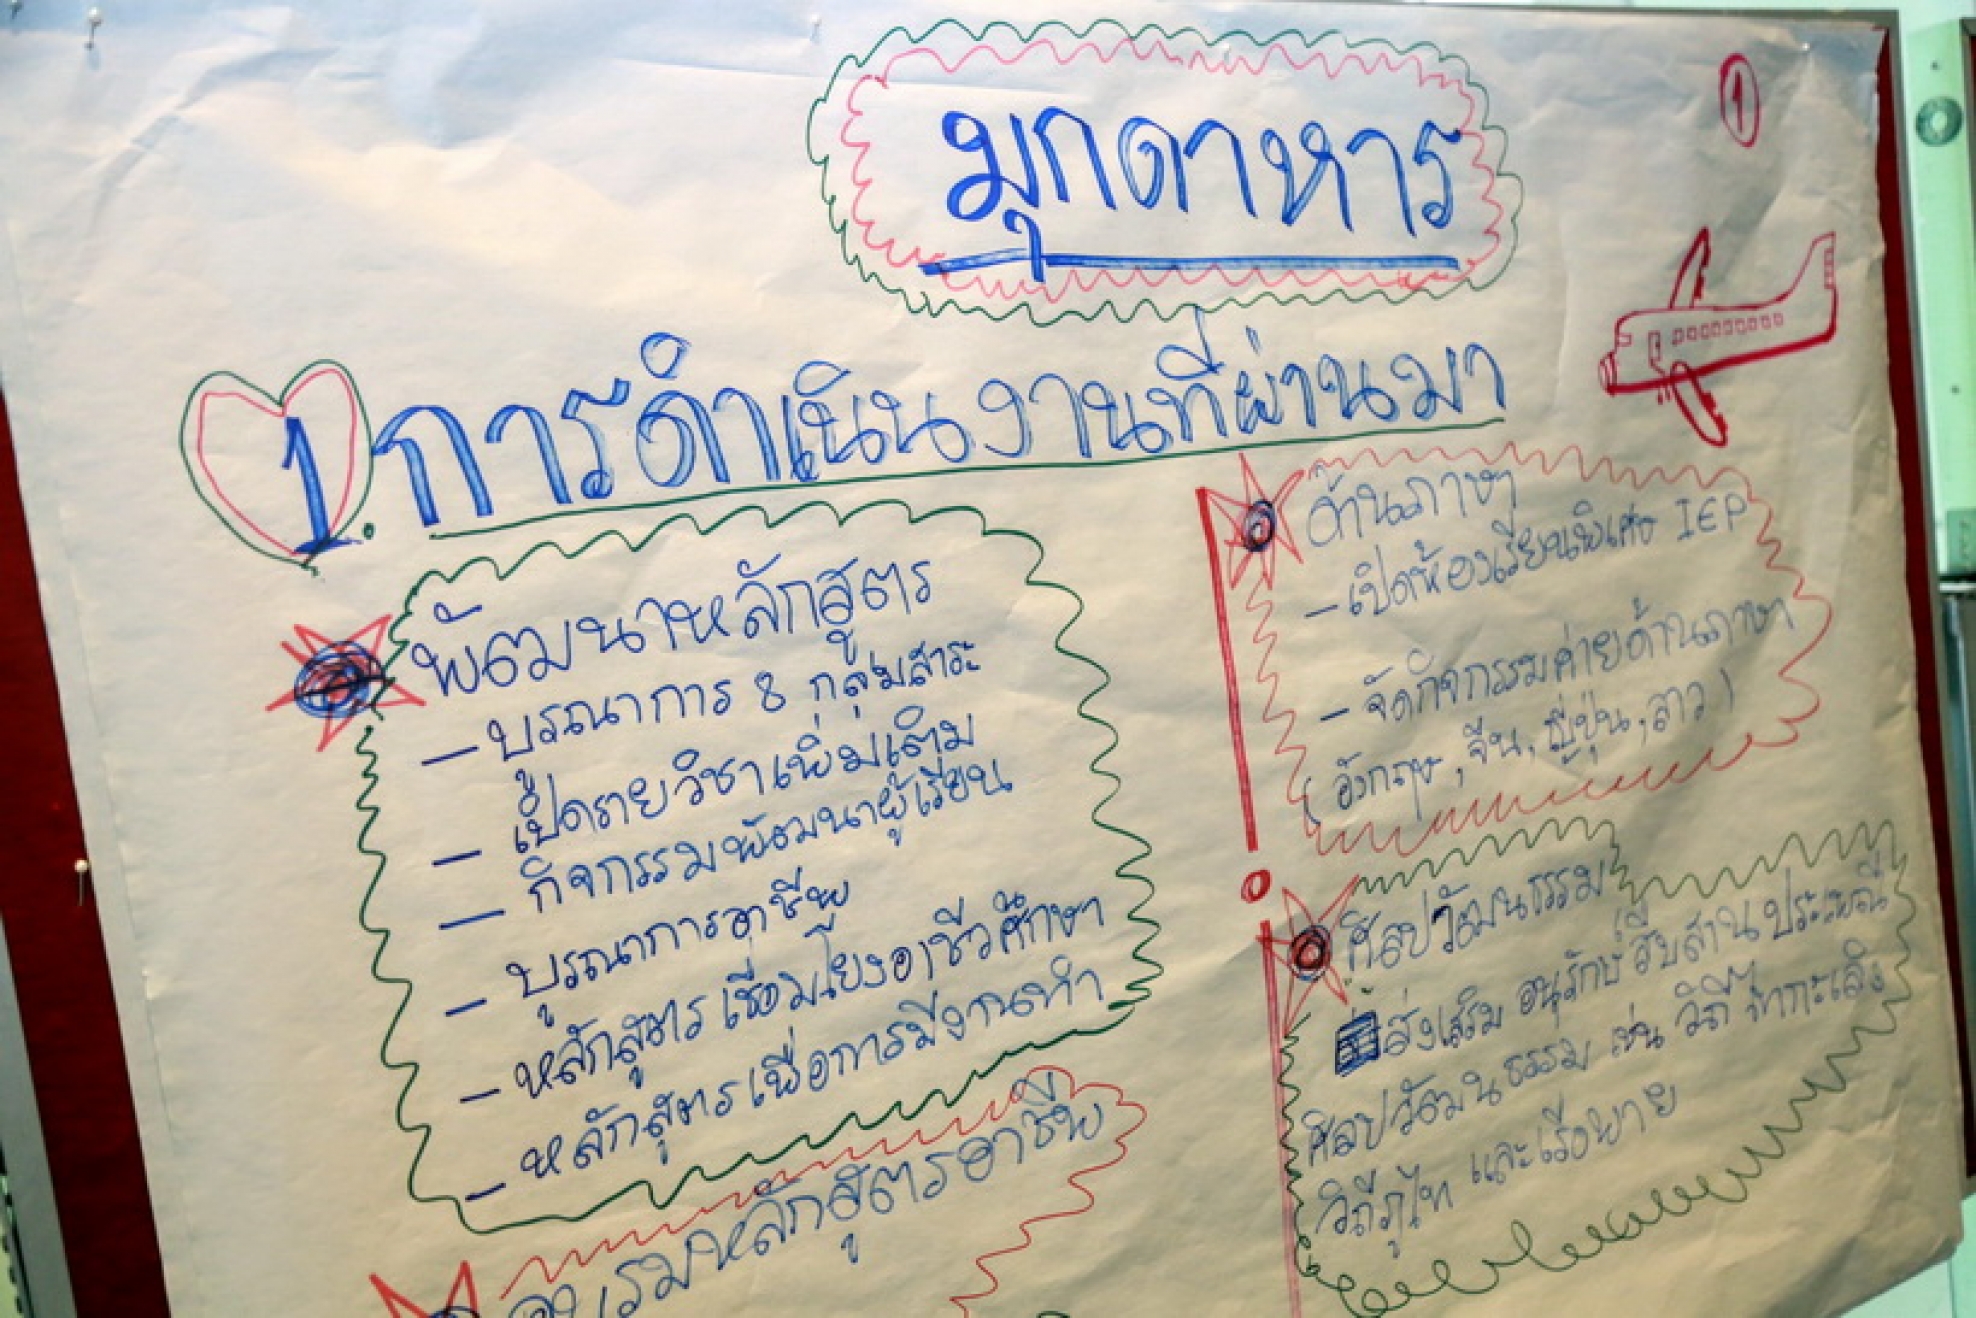 ๑
มุกดาหาร
1. การดำเนินงานที่ผ่านมา
พัฒนาหลักสูตร
- บูรณาการ 8 กลุ่มสาระ
- เปิดรายวิชาเพิ่มเติม
- กิจกรรมพัฒนาผู้เรียน
- บูรณาการอาชีพ
- หลักสูตรเชื่อมโยงอาชีวศึกษา
- หลักสูตรเพื่อการมีงานทำ
อบรมหลักสูตรอาชีพ
ด้านภาษา
- เปิดห้องเรียนพิเศษ IEP
- จัดกิจกรรมค่ายด้านภาษา
(อังกฤษ, จีน, ญี่ปุ่น, ลาว)
ศิลปวัฒนธรรม
ส่งเสริม อนุรักษ์ สืบสาน ประเพณี
ศิลปวัฒนธรรม เช่น วิถี ไทกะเลิง
วิถีภูไท และเรือพาย